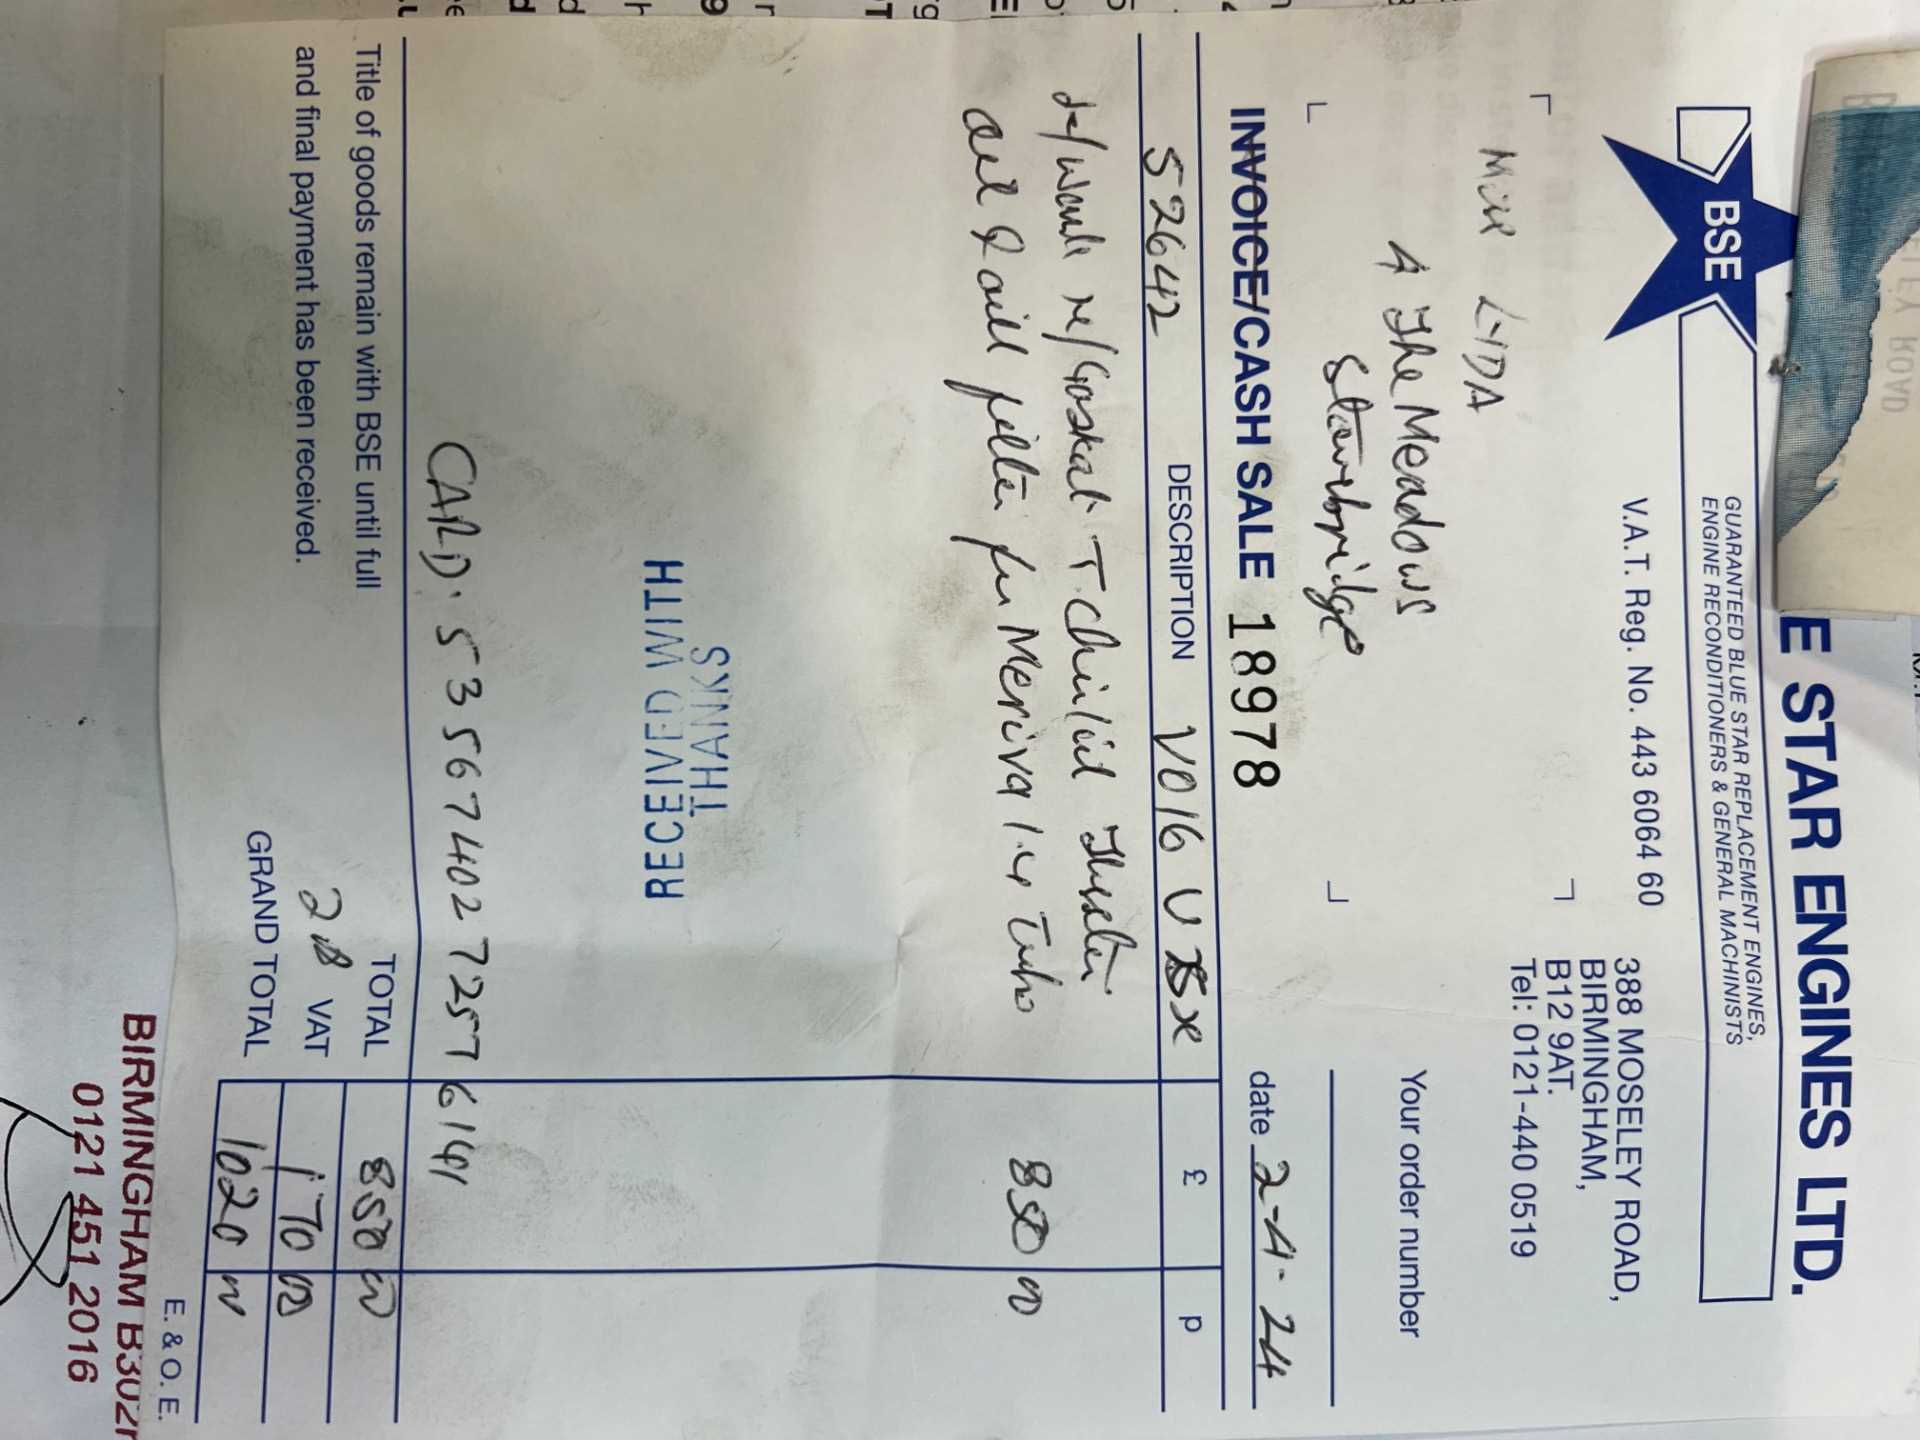 E STAR ENGINES LTD.
GUARANTEED BLUE STAR REPLACEMENT ENGINES,
ENGINE RECONDITIONERS & GENERAL MACHINISTS
BSE
V.A.T. Reg. No. 443 6064 60
388 MOSELEY ROAD,
BIRMINGHAM,
B12 9AT.
Tel: 0121-440 0519
4 The Meadows
Stourbridge
Your order number
INVOICE/CASH SALE 18978
date 2-4-24
52642 DESCRIPTION £ p
T.Chain/oil
and oil filter for Meriva 1.4 Turbo 850 00
RECEIVED WITH
THANKS
CARD. 5356 7402 7257 6141
Title of goods remain with BSE until full
and final payment has been received.
TOTAL 850 00
20 VAT 170 00
GRAND TOTAL 1020 00
E. & O. E.
BIRMINGHAM
0121 451 2016